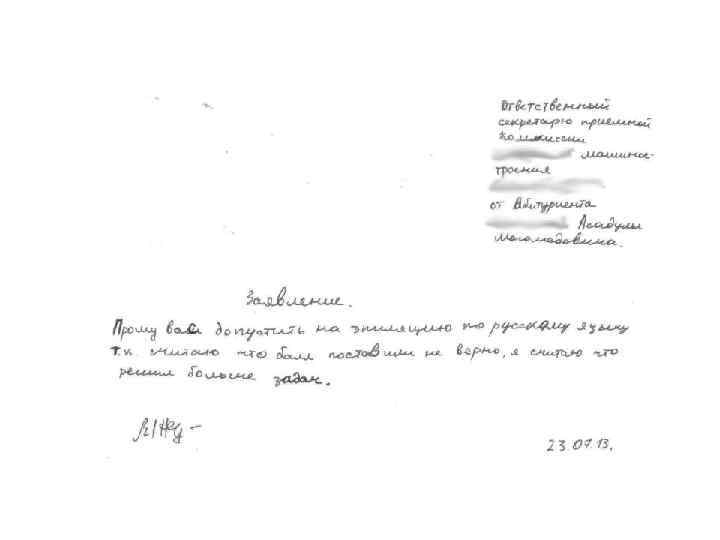 Ответственный
секретарю приемной
Коммиссии
машинс-
троения
от Абитуриента
Асадулы
Магомадовича.
Заявление.
Прошу вас допустить на эпиляцию по русскому языку
т.к. считаю что балл поставили не верно, я считаю что
решил больше задач.
23.07.13.